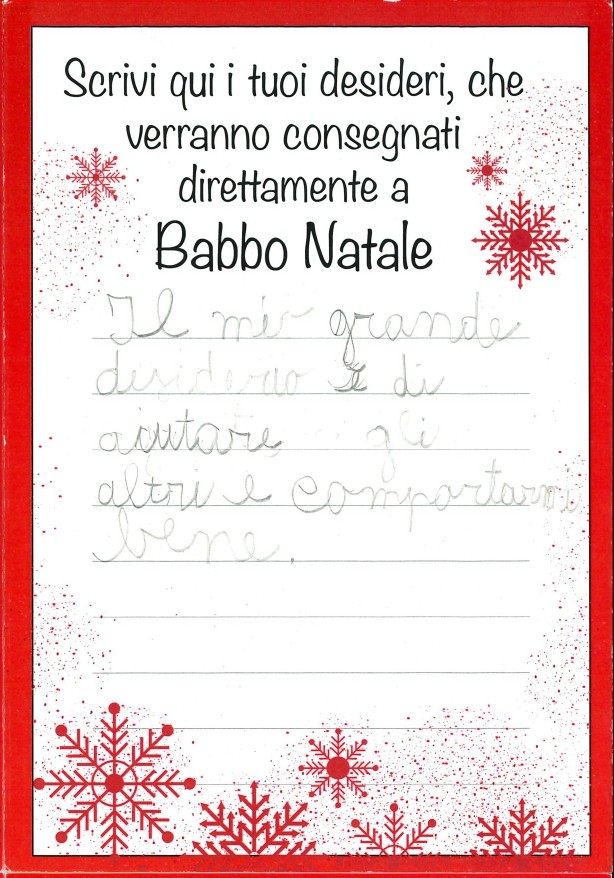 Scrivi qui i tuoi desideri, che
verranno consegnati
direttamente a
Babbo Natale
Il mio grande
desiderio è di
aiutare gli
altri e comportarmi
bene.